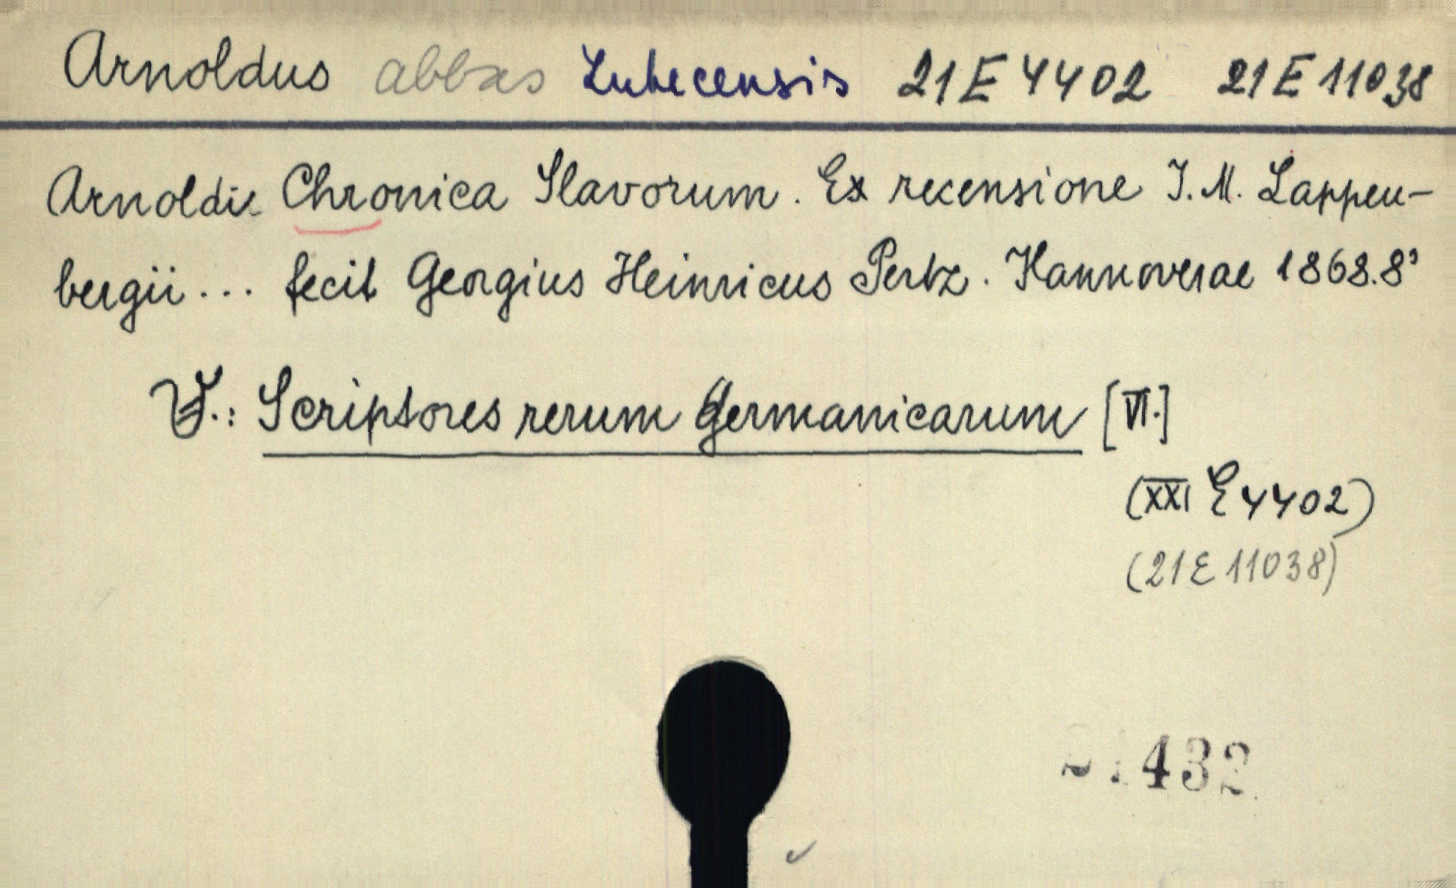 Arnoldus abbas Lubecensis 21 E 4402 21 E 11038
Arnoldi Chronica Slavorum. Ex recensione I. M. Lappen-
bergii ... fecit Georgius Heinricus Pertz. Hannoverae 1868. 8°
Scriptores rerum Germanicarum [VI.]
(XXI E 4402)
(21 E 11038)
432